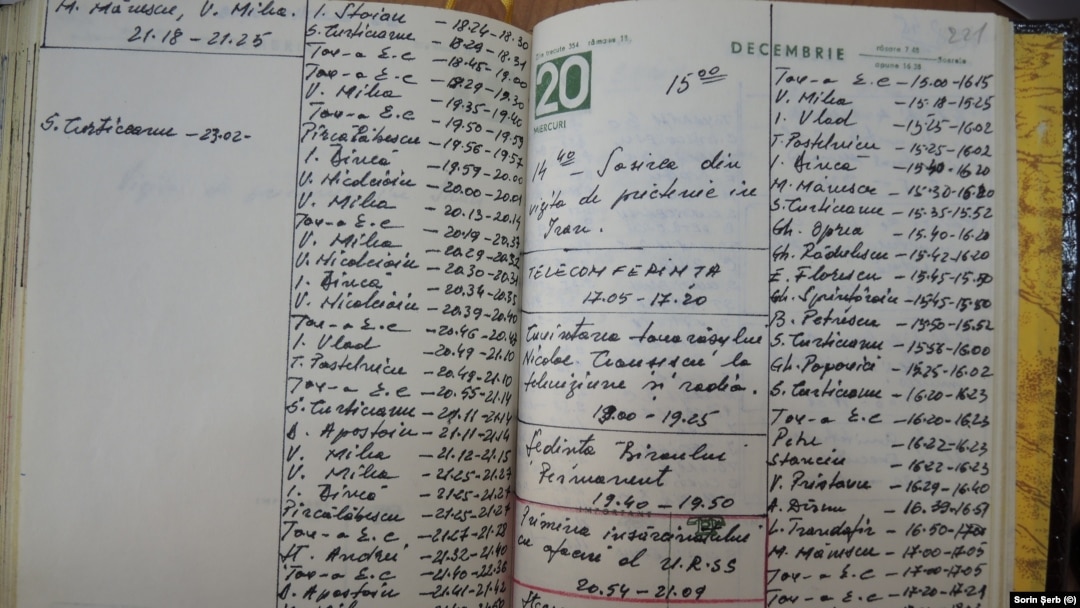 M. Mănescu, V. Milea.
21.18 – 21.25
S. Curticeanu – 23.02-
I. Stoian – 18.24-18.30
S. Curticeanu – 18.29-18.31
Tov-a E.C – 18.45-19.00
Tov-a E.C – 19.29-19.30
V. Milea – 19.35-19.40
Tov-a E.C – 19.50-19.59
Pîrcălăbescu – 19.56-19.57
I. Dincă – 19.59-20.00
V. Nicolcioiu – 20.00-20.01
V. Milea – 20.13-20.14
Tov-a E.C – 20.19-20.37
V. Milea – 20.29-20.32
V. Nicolcioiu – 20.30-20.31
I. Dincă – 20.34-20.35
V. Nicolcioiu – 20.39-20.40
Tov-a E.C – 20.46-20.47
I. Vlad – 20.49-21.10
T. Postelnicu – 20.49-21.10
Tov-a E.C – 20.55-21.14
S. Curticeanu – 21.11-21.14
D. Apostoiu – 21.11-21.14
V. Milea – 21.12-21.15
V. Milea – 21.25-21.27
I. Dincă – 21.25-21.27
Pîrcălăbescu – 21.25-21.27
Tov-a E.C – 21.27-21.28
Șt. Andrei – 21.32-21.40
Tov-a E.C – 21.40-22.36
D. Apostoiu – 21.41-21.42
Zile trecute 354 rămase 11
20
MIERCURI
15⁰⁰
14⁴⁰ – Sosirea din
vizita de prietenie in
Iran.
TELECONFERINTA
17.05 – 17.20
Cuvintarea tovarășului
Nicolae Ceaușescu la
televiziune și radio.
19.00 – 19.25
Sedinta Biroului
Permanent
19.40 – 19.50
IMPORTANT
Primirea insărcinatului
cu afaceri al U.R.SS
20.54 – 21.09
DECEMBRIE
răsare 7.48
apune 16.38
Soarele
221
Tov-a E.C – 15.00-16.15
V. Milea – 15.18-15.25
I. Vlad – 15.25-16.02
T. Postelnicu – 15.25-16.02
I. Dincă – 15.40-16.20
M. Mănescu – 15.30-16.20
S. Curticeanu – 15.35-15.52
Gh. Oprea – 15.40-16.20
Gh. Rădulescu – 15.42-16.20
E. Florescu – 15.45-15.50
Gh. Sprințăroiu – 15.45-15.50
B. Petrescu – 15.50-15.52
S. Curticeanu – 15.56-16.00
Gh. Popovici – 15.25-16.02
S. Curticeanu – 16.20-16.23
Tov-a E.C – 16.20-16.23
Petre – 16.22-16.23
Stanciu – 16.22-16.23
V. Pristavu – 16.29-16.40
A. Dîrnu – 16.39-16.51
L. Trandafir – 16.50-17.00
M. Mănescu – 17.00-17.05
Tov-a E.C – 17.00-17.05
Tov-a E.C – 17.20-17.29
Sorin Șerb (©)